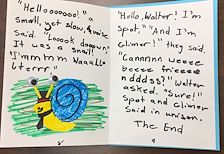 "Hellooooooo!" a
small, yet slow, & wise
said. "Loook dooown".
It was a snail!
"I'mmmm Waaall
uterrr"
"Hello, Walter! I'm
Spot," "And I'm
Glimer!" they said.
"Cannnn weeee
beeee frieeee
ndddss?" Walter
asked. "Sure!"
Spot and Glimer
said in unison.
The End